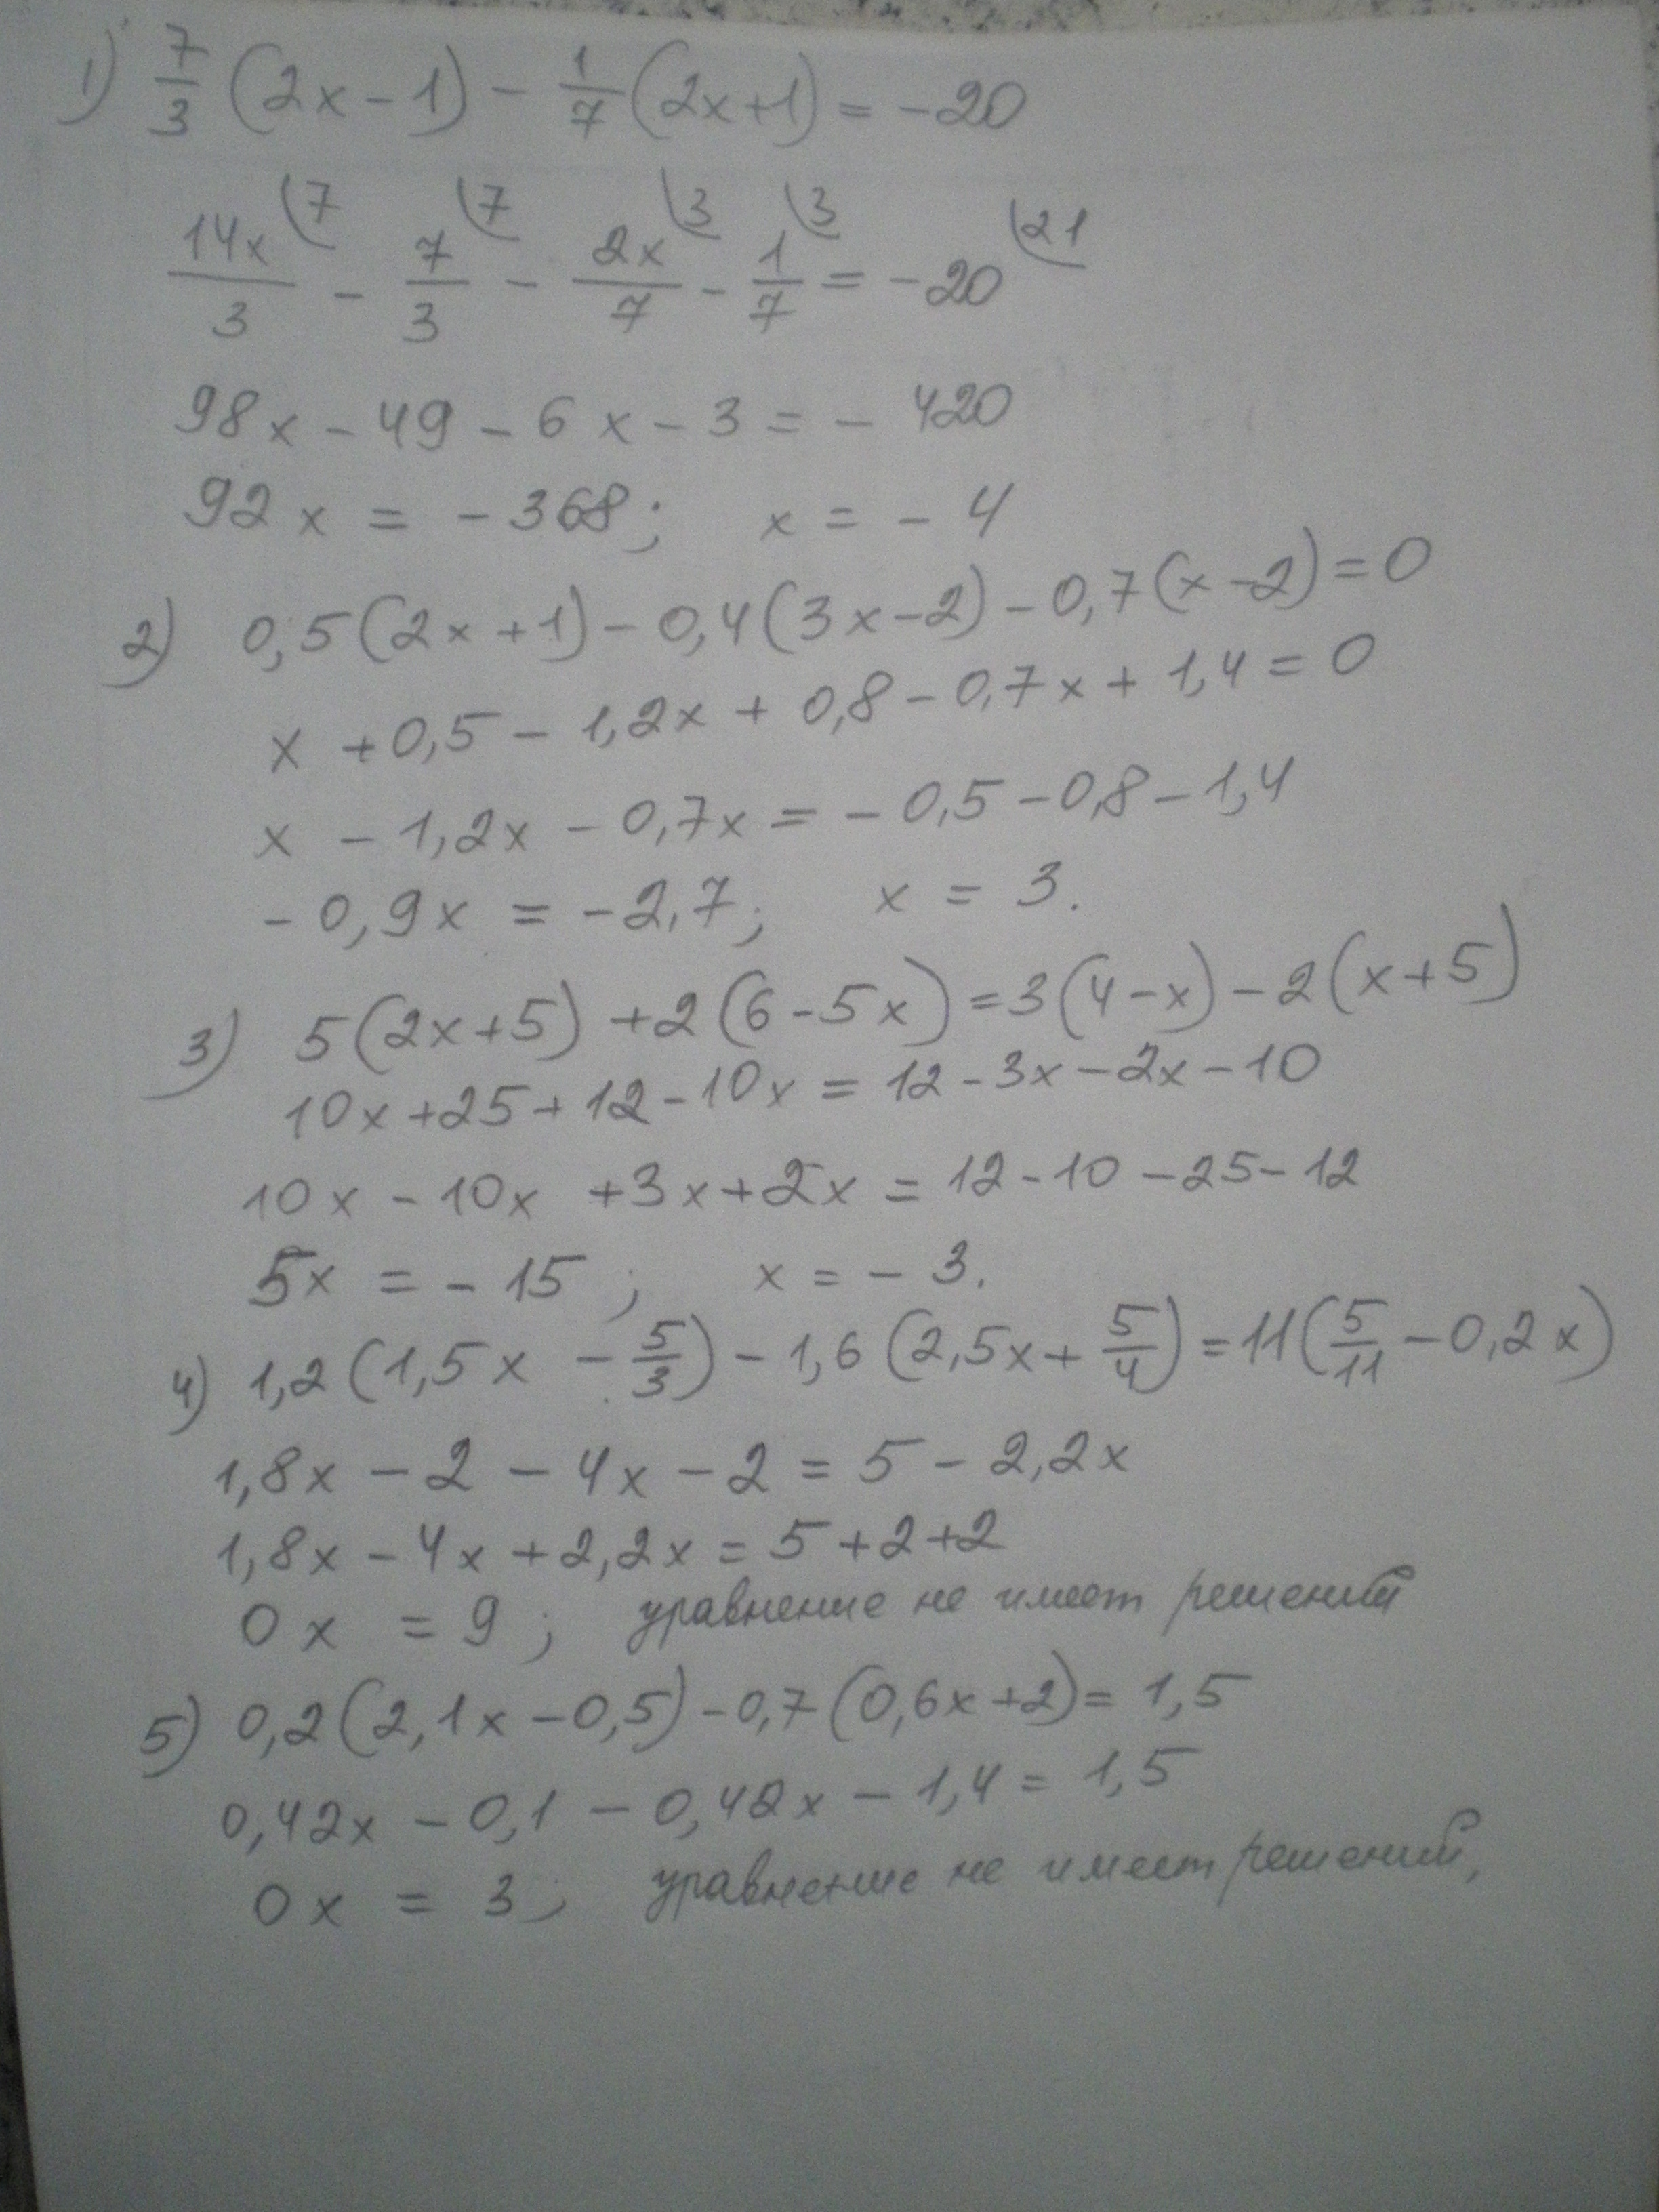 1) 7/3 (2x - 1) - 1/7 (2x + 1) = -20
14x/3 (7 - 7/3 (7 - 2x/7 (3 - 1/7 (3 = -20 (21
98x - 49 - 6x - 3 = - 420
92x = - 368; x = - 4
2) 0,5(2x + 1) - 0,4(3x - 2) - 0,7(x - 2) = 0
x + 0,5 - 1,2x + 0,8 - 0,7x + 1,4 = 0
x - 1,2x - 0,7x = - 0,5 - 0,8 - 1,4
- 0,9x = - 2,7; x = 3.
3) 5(2x + 5) + 2(6 - 5x) = 3(4 - x) - 2(x + 5)
10x + 25 + 12 - 10x = 12 - 3x - 2x - 10
10x - 10x + 3x + 2x = 12 - 10 - 25 - 12
5x = - 15; x = - 3.
4) 1,2(1,5x - 5/3) - 1,6(2,5x + 5/4) = 11(5/11 - 0,2x)
1,8x - 2 - 4x - 2 = 5 - 2,2x
1,8x - 4x + 2,2x = 5 + 2 + 2
0x = 9; уравнение не имеет решений
5) 0,2(2,1x - 0,5) - 0,7(0,6x + 2) = 1,5
0,42x - 0,1 - 0,42x - 1,4 = 1,5
0x = 3; уравнение не имеет решений,